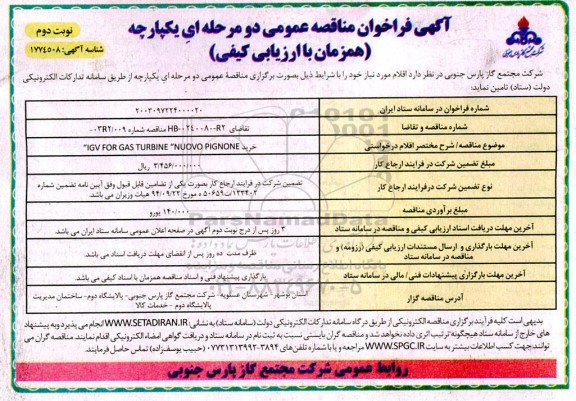 نوبت دوم
شناسه آگهی: ۱۷۷۴۵۰۸
آگهی فراخوان مناقصه عمومی دو مرحله ایِ یکپارچه
(همزمان با ارزیابی کیفی)
شرکت مجتمع گاز پارس جنوبی در نظر دارد اقلام مورد نیاز خود را با شرایط ذیل بصورت برگزاری مناقصهٔ عمومی دو مرحله ایِ یکپارچه از طریق سامانه تدارکات الکترونیکی
دولت (ستاد) تامین نماید:
شماره فراخوان در سامانه ستاد ایران ۲۰۰۳۰۹۷۲۲۴۰۰۰۰۲۰
شماره مناقصه و تقاضا تقاضای HB-۰۰۲۴۰۰۸۰۰-R۲ مناقصه شماره ۰۰۳R۲/۰۰۹
موضوع مناقصه/ شرح مختصر اقلام درخواستی خرید IGV FOR GAS TURBINE "NUOVO PIGNONE"
مبلغ تضمین شرکت در فرایند ارجاع کار ۳/۴۵۶/۰۰۰/۰۰۰ ریال
نوع تضمین شرکت در فرایند ارجاع کار تضمین شرکت در فرایند ارجاع کار بصورت یکی از تضامین قابل قبول وفق آیین نامه تضمین شماره
۱۲۳۴۰۲/ت۵۰۶۵۹ ه مورخ ۹۴/۰۹/۲۲ هیات وزیران می باشد.
مبلغ برآوردی مناقصه ۱۴۰/۰۰۰ یورو
آخرین مهلت دریافت اسناد ارزیابی کیفی و مناقصه در سامانه ستاد ۳ روز پس از درج نوبت دوم آگهی در صفحه اعلان عمومی سامانه ستاد ایران می باشد.
آخرین مهلت بارگذاری و ارسال مستندات ارزیابی کیفی (رزومه) و
مناقصه در سامانه ستاد ظرف مدت ده روز پس از انقضای مهلت دریافت اسناد می باشد
آخرین مهلت بارگزاری پیشنهادات فنی/ مالی در سامانه ستاد بارگذاری پیشنهاد فنی و اسناد مناقصه همزمان با اسناد کیفی می باشد.
آدرس مناقصه گزار استان بوشهر - شهرستان عسلویه - شرکت مجتمع گاز پارس جنوبی - پالایشگاه دوم - ساختمان مدیریت
پالایشگاه دوم - خدمات کالا
بدیهی است کلیه فرآیند برگزاری مناقصه الکترونیکی از طریق درگاه سامانه تدارکات الکترونیکی دولت (سامانه ستاد) به نشانی WWW.SETADIRAN.IR انجام می پذیرد و به پیشنهاد
های خارج از سامانه ستاد هیچگونه ترتیب اثری داده نخواهد شد و مناقصه گران بایستی نسبت به ثبت نام در سامانه ستاد و دریافت گواهی امضاء الکترونیکی اقدام نمایند. مناقصه گران می
توانند جهت کسب اطلاعات بیشتر به سایت WWW.SPGC.IR مراجعه و یا با شماره تلفن های ۳۸۹۴-۰۷۷۳۱۳۱۳۹۹۲ (حبیب یوسف زاده) تماس حاصل فرمایند.
روابط عمومی شرکت مجتمع گاز پارس جنوبی